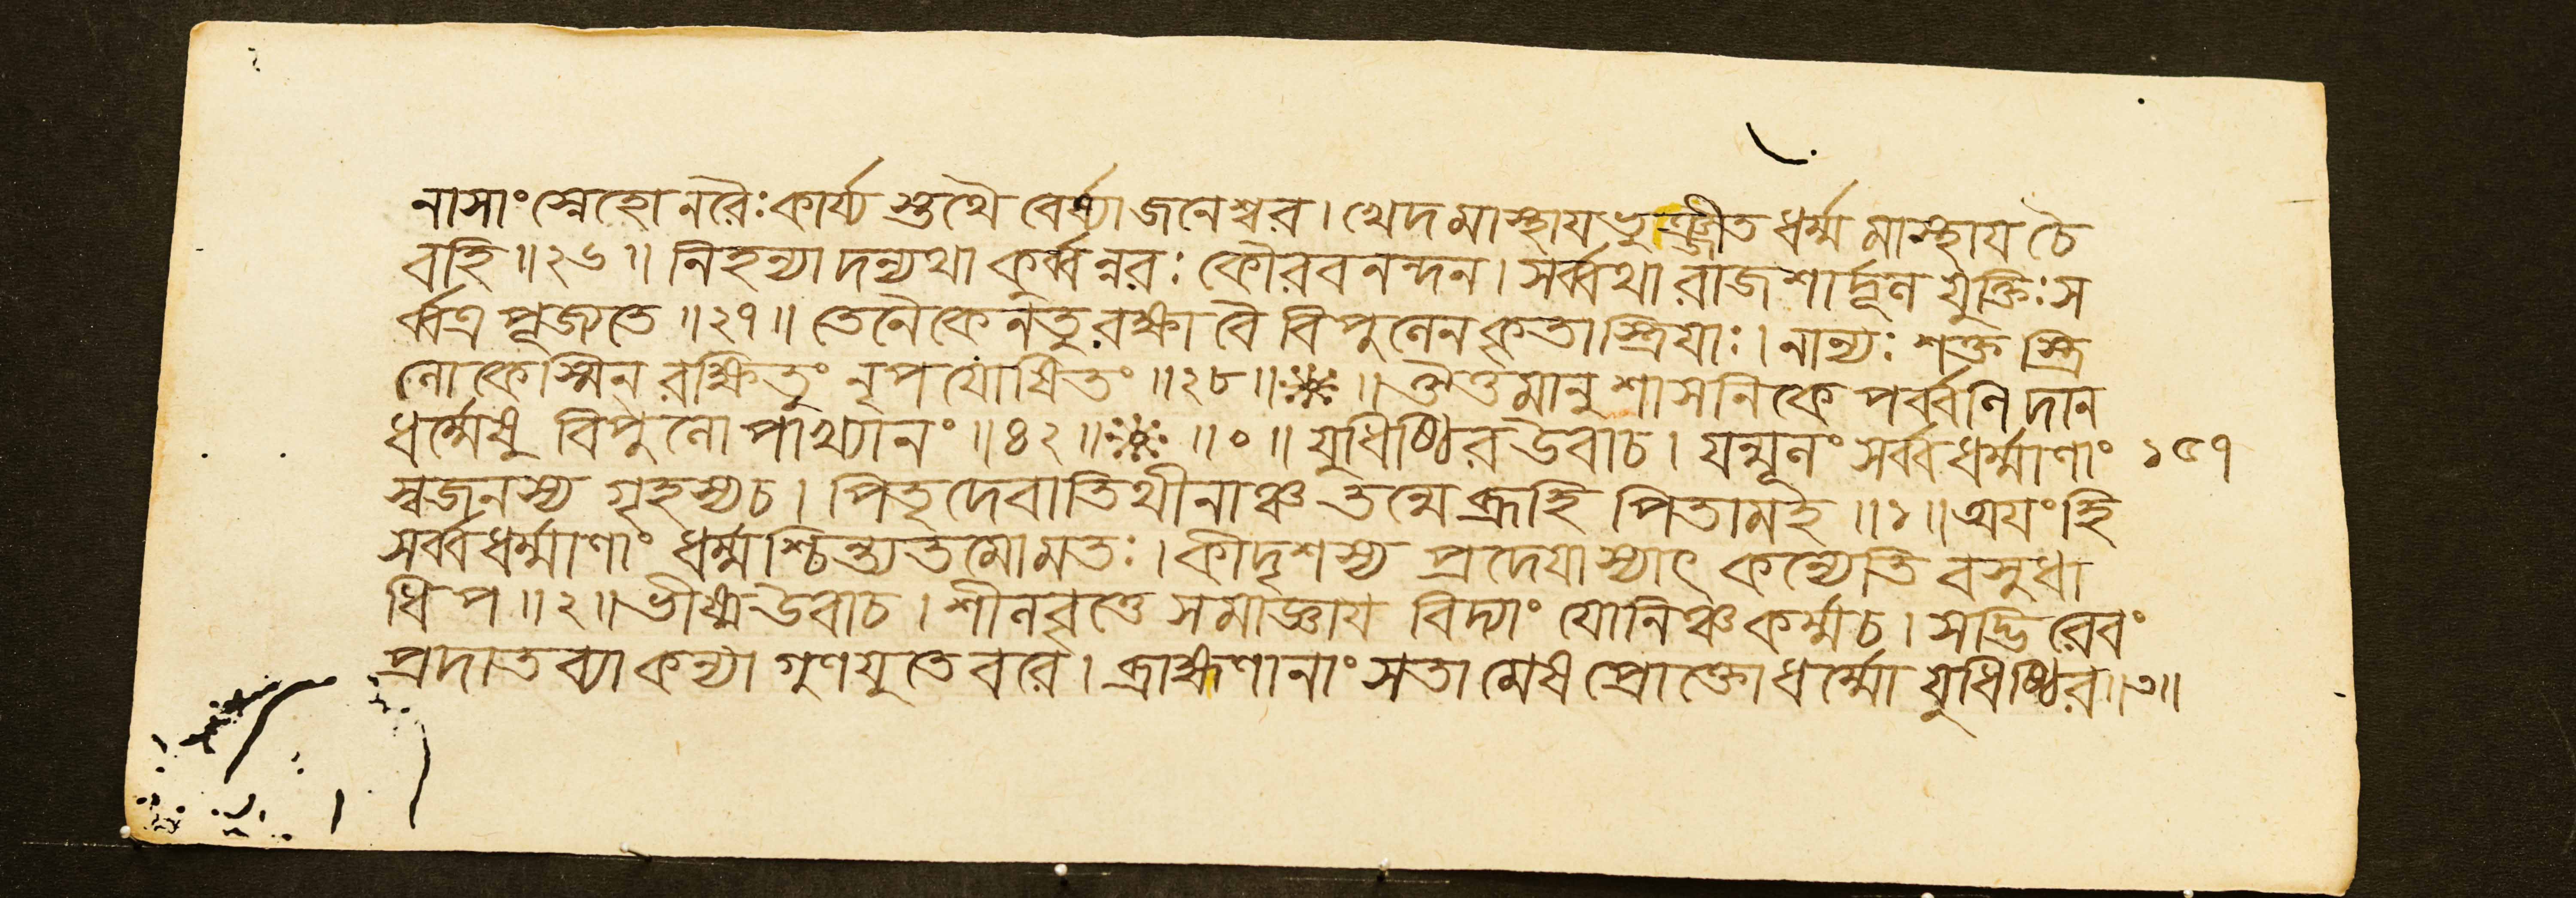 নাসাং স্নেহো নরৈঃ কার্য্য স্তথৈ বের্ষ্যা জনেশ্বর। খেদ মাস্থায ভুঞ্জীত ধর্ম্ম মাস্থায চৈ
বহি॥২৬॥ নিহন্যা দন্যথা কুর্ব্বন্নরঃ কৌরব নন্দন। সর্ব্বথা রাজশার্দ্দূল যুক্তিঃ স
র্ব্বত্র পূজ্যতে॥২৭॥ তেনৈকেন তু রক্ষা বৈ বিপুলেন কৃতা স্ত্রিযাঃ। নান্যঃ শক্ত স্ত্রি
লোকেস্মিন রক্ষিতুং নৃপ যোষিতং॥২৮॥ ॥ ঔত্তমানুশাসনিকে পর্ব্বণি দান
ধর্ম্মেষু বিপুলোপাখ্যানং॥৪২॥ ॥০॥ যুধিষ্ঠির উবাচ। যন্মূলং সর্ব্ব ধর্ম্মাণাং ১৫৭
স্বজনস্য গৃহস্য চ। পিতৃদেবাতিথীনাঞ্চ তন্মে ব্রূহি পিতামহ॥১॥ অযং হি
সর্ব্ব ধর্ম্মাণাং ধর্ম্মশ্চিন্ত্যতমো মতঃ। কীদৃশস্য প্রদেযা স্যাৎ কন্যেতি বসুধা
ধিপ॥২॥ ভীষ্ম উবাচ। শীলবৃত্তে সমাজ্ঞায বিদ্যাং যোনিঞ্চ কর্ম্ম চ। সদ্ভি রেবং
প্রদাতব্যা কন্যা গুণযুতে বরে। ব্রাহ্মণানাং সতা মেষ প্রোক্তো ধর্ম্মো যুধিষ্ঠির॥৩॥